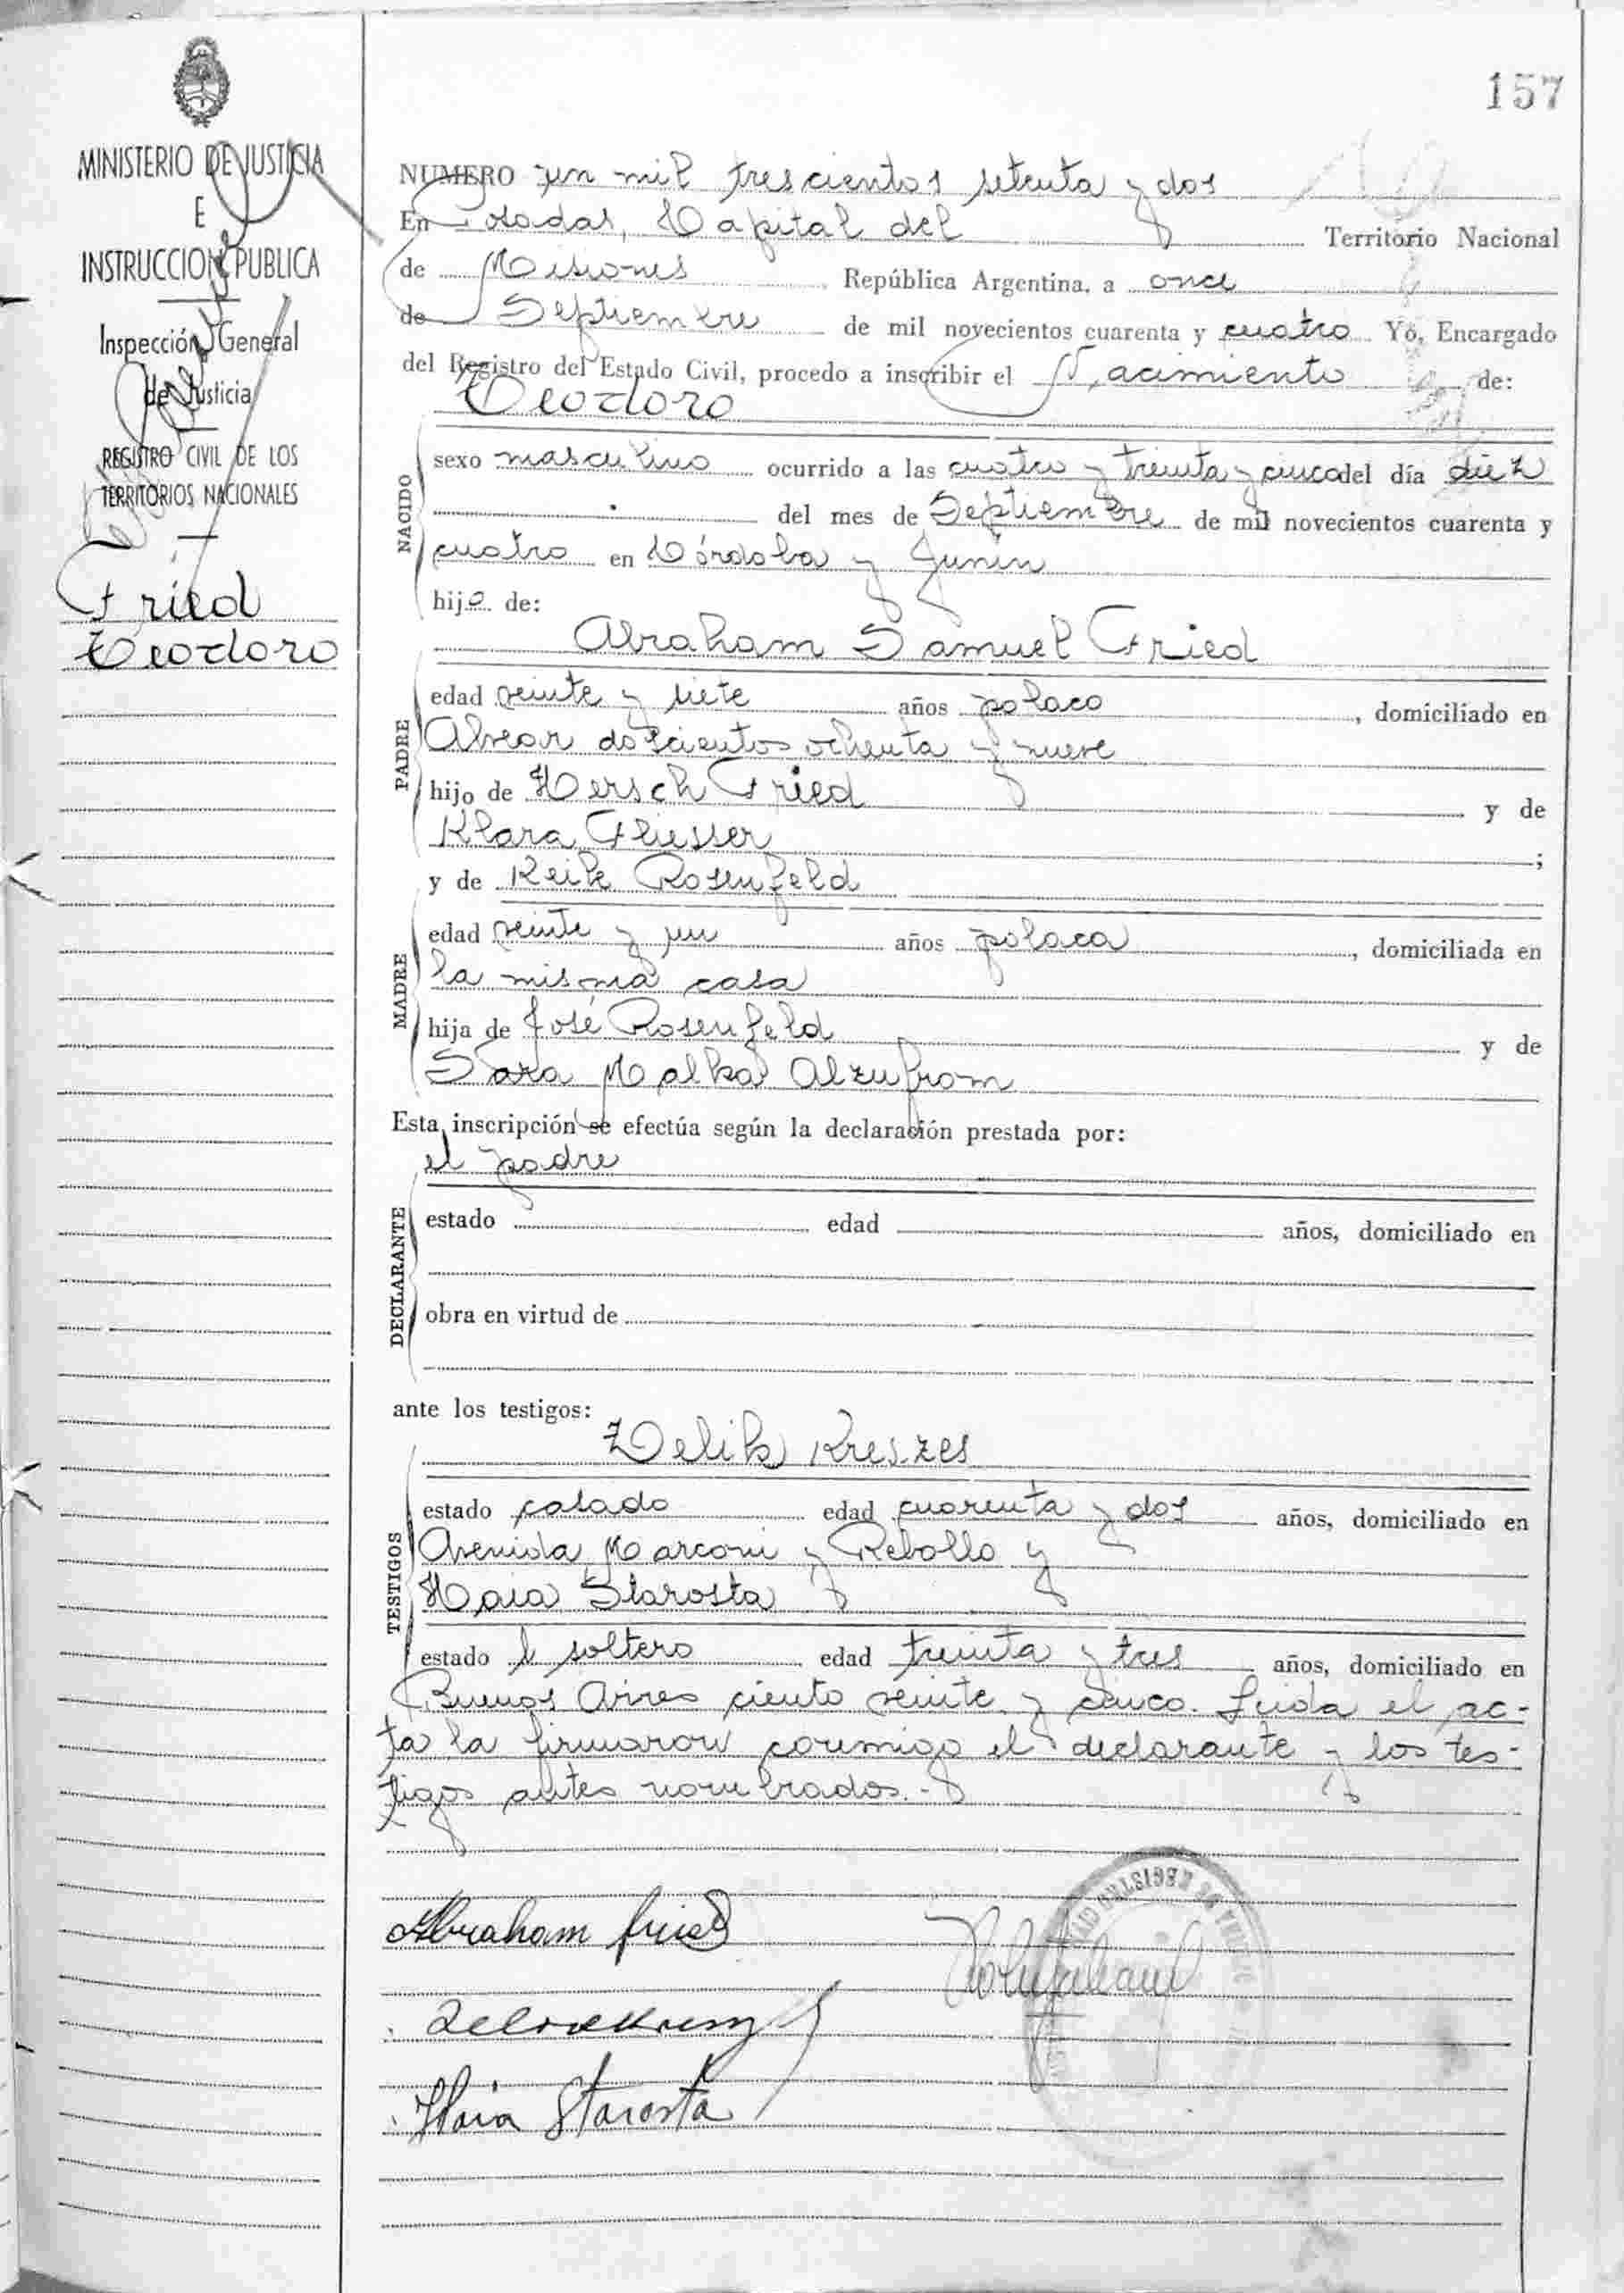 157
MINISTERIO DE JUSTICIA
E
INSTRUCCION PUBLICA
Inspección General
de Justicia
REGISTRO CIVIL DE LOS
TERRITORIOS NACIONALES
Fried
Teodoro
NUMERO un mil trescientos setenta y dos
En Posadas, Capital del Territorio Nacional
de Misiones República Argentina, a once
de Septiembre de mil novecientos cuarenta y cuatro Yo, Encargado
del Registro del Estado Civil, procedo a inscribir el Nacimiento de:
Teodoro
NACIDO
sexo masculino ocurrido a las cuatro y treinta y cinco del día diez
del mes de Septiembre de mil novecientos cuarenta y
cuatro en Córdoba y Junín
hijo de:
Abraham Samuel Fried
PADRE
edad veinte y siete años polaco, domiciliado en
Alvear doscientos ochenta y nueve
hijo de Hersch Fried y de
Klara Fliesser;
y de Reik Rosenfeld
MADRE
edad veinte y un años polaca, domiciliada en
la misma casa
hija de José Rosenfeld y de
Sara Malka Alzufrom
Esta inscripción se efectúa según la declaración prestada por:
el padre
DECLARANTE
estado edad años, domiciliado en
obra en virtud de
ante los testigos:
Zelik Kreszes
TESTIGOS
estado casado edad cuarenta y dos años, domiciliado en
Avenida Marconi y Rebollo y
Haia Starosta
estado soltero edad treinta y tres años, domiciliado en
Buenos Aires ciento veinte y cinco. Leida el ac-
ta la firmaron conmigo el declarante y los tes-
tigos antes nombrados.-
Abraham Fried
Haia Starosta